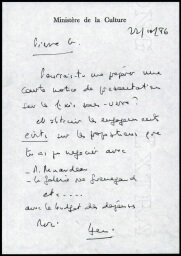 Ministère de la Culture
22/10/86
Pierre G.
Pourrais-tu me préparer une
courte notice de présentation
sur le
et obtenir les engagements
écrits sur les propositions que
tu as pu négocier avec
- A.
- la Galerie de
etc.....
avec le budget des dépenses
Merci.